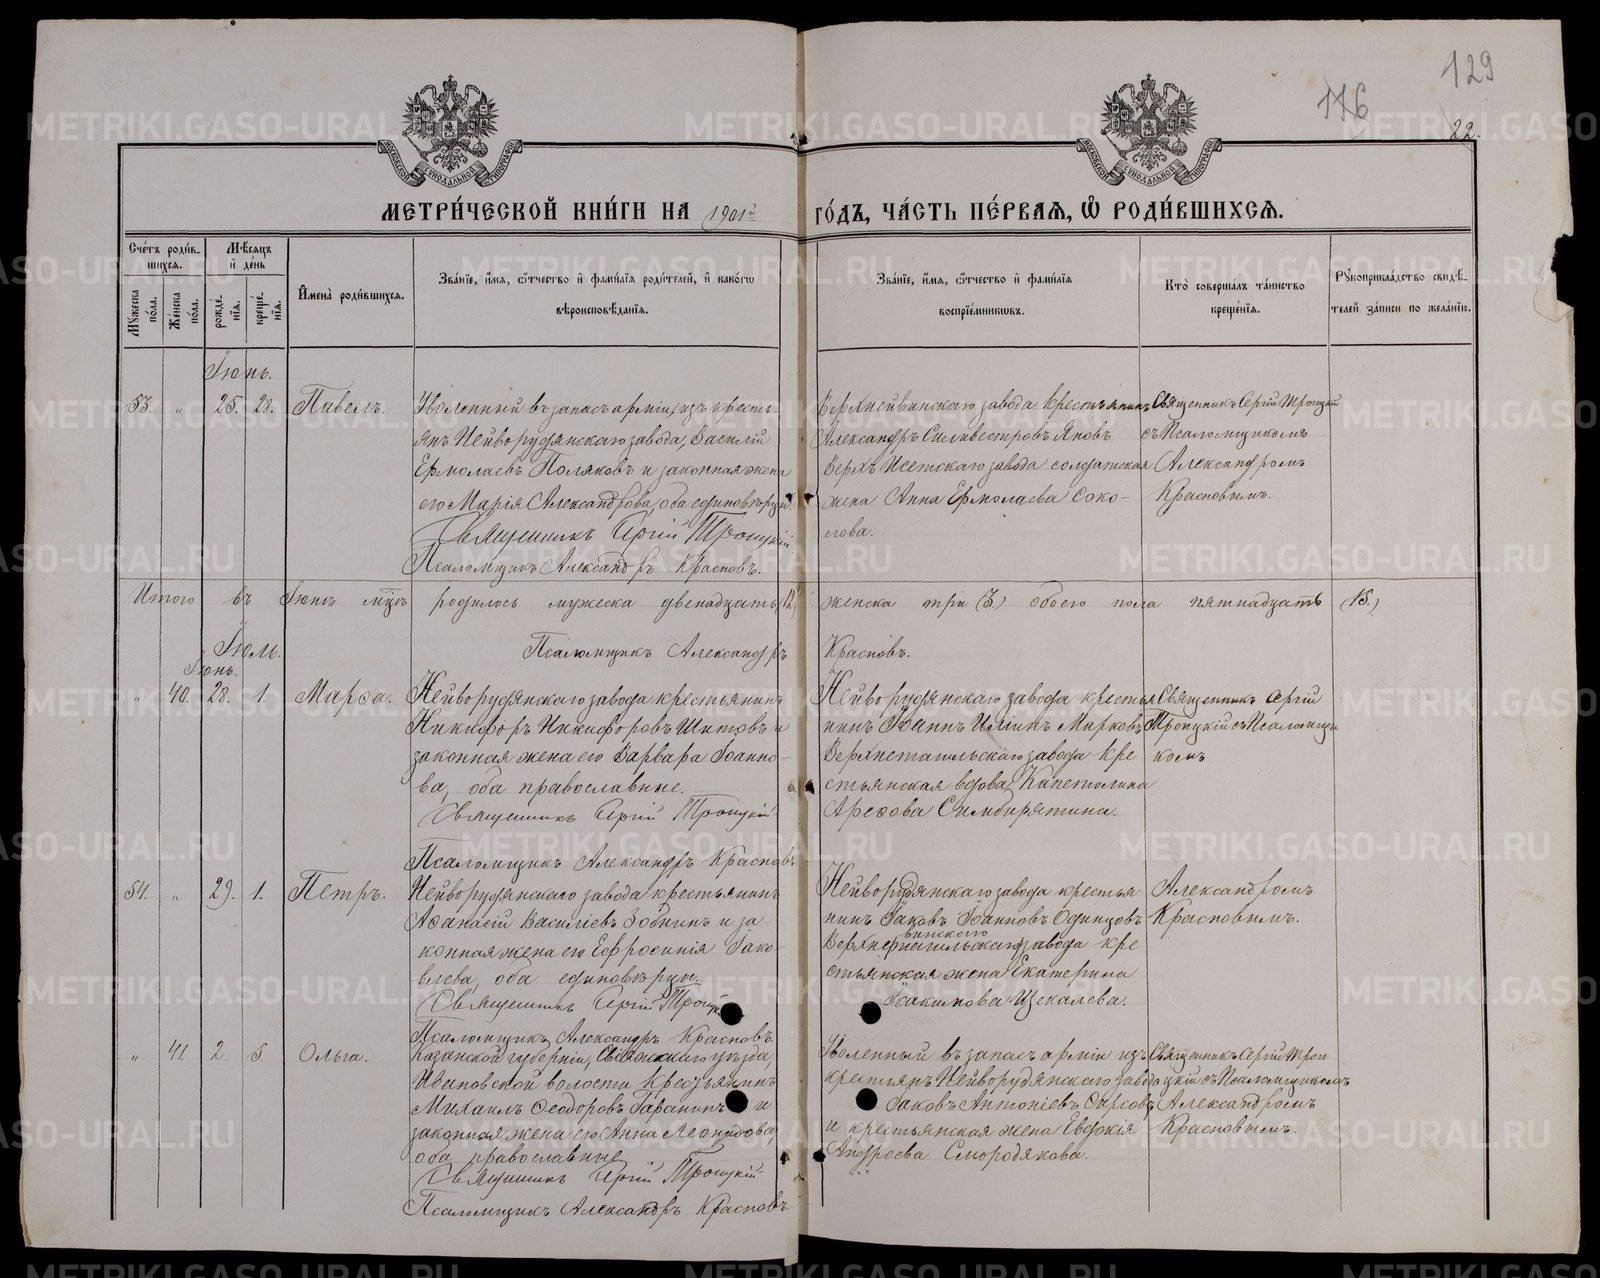 129
116
22.
МЕТРИ́ЧЕСКОЙ КНИ́ГИ НА 1901й ГО́ДЪ, ЧА́СТЬ ПЕ́РВАЯ, Ѿ РОДИ́ВШИХСЯ.
Сче́тъ роди́в-
шихся.
Мѣ́сяцъ
и҆ де́нь
Мꙋ́жеска
по́ла.
Же́нска
по́ла.
рожде́-
нїѧ.
креще́-
нїѧ.
И҆мена̀ роди́вшихся.
Зва́нїе, и҆́мя, ѻ҆́тчество и҆ фами́лїя роди́телей, и҆ како́гѡ
вѣроисповѣ́данїя.
Зва́нїе, и҆́мя, ѻ҆́тчество и҆ фами́лїя
воспрїе́мникѡвъ.
Кто̀ соверша́лъ та́инство
креще́нїя.
Рꙋкоприкла́дство свидѣ́-
телей за́писи по жела́нїю.
Іюнь.
53. " 25. 28. Павелъ.
Уволенный въ запасъ арміи изъ кресть-
янъ Нейворудянскаго завода, Василій
Ермолаевъ Поляковъ и законная жена
его Марія Александрова, оба единовѣрцы.
Священникъ Сергій Троицкій
Псаломщикъ Александръ Красновъ.
Верхнейвинскаго завода крестьянинъ
Александръ Силивестровъ Яновъ
Верхъ Исетскаго завода солдатская
жена Анна Ермолаева Соко-
лова.
Священникъ Сергій Троицкій
съ Псаломщикомъ
Александромъ
Красновымъ.
Итого въ Іюнѣ мцѣ родилось мужеска двенадцать (12) женска три (3) обоего пола пятнадцать (15.)
Псаломщикъ Александръ Красновъ.
Іюль.
Іюнь.
" 40. 28. 1. Марѳа.
Нейворудянскаго завода крестьянинъ
Никифоръ Никифоровъ Шитовъ и
законная жена его Варвара Іоанно-
ва, оба православные.
Священникъ Сергій Троицкій
Псаломщикъ Александръ Красновъ
Нейворудянскаго завода крестья
нинъ Іоаннъ Илiинъ Марковъ
Верхнетагильскаго завода кре
стьянская вдова Капетолина
Арефова Симбирятина.
Священникъ Сергій
Троицкій съ Псаломщи
комъ
54. " 29. 1. Петръ.
Нейворудянскаго завода крестьянинъ
Аѳанасій Василіевъ Зобнинъ и за
конная жена его Ефросинія Іако-
влева, оба единовѣрцы.
Священникъ Сергій Троицк
Псаломщикъ Александръ Красновъ.
Нейворудянскаго завода крестья
нинъ Іаковъ Іоанновъ Одинцовъ
винскаго
Верхнетагильскаго завода кре
стьянская жена Екатерина
Іоакимова Щекалева.
Александромъ
Красновымъ.
" 41. 2. 5. Ольга.
Казанской губерніи, Свіяжскаго уѣзда,
Ивановской волости крестьянинъ
Михаилъ Ѳеодоровъ Гаранинъ и
законная жена его Анна Леонидова,
оба православные
Священникъ Сергій Троицкій
Псаломщикъ Александръ Красновъ.
Уволенный въ запасъ арміи изъ
крестьянъ Нейворудянскаго завода
Іаковъ Антоніевъ Сысовъ
и крестьянская жена Евдокія
Андреева Смородякова.
Священникъ Сергій Трои
цкій съ Псаломщикомъ
Александромъ
Красновымъ.